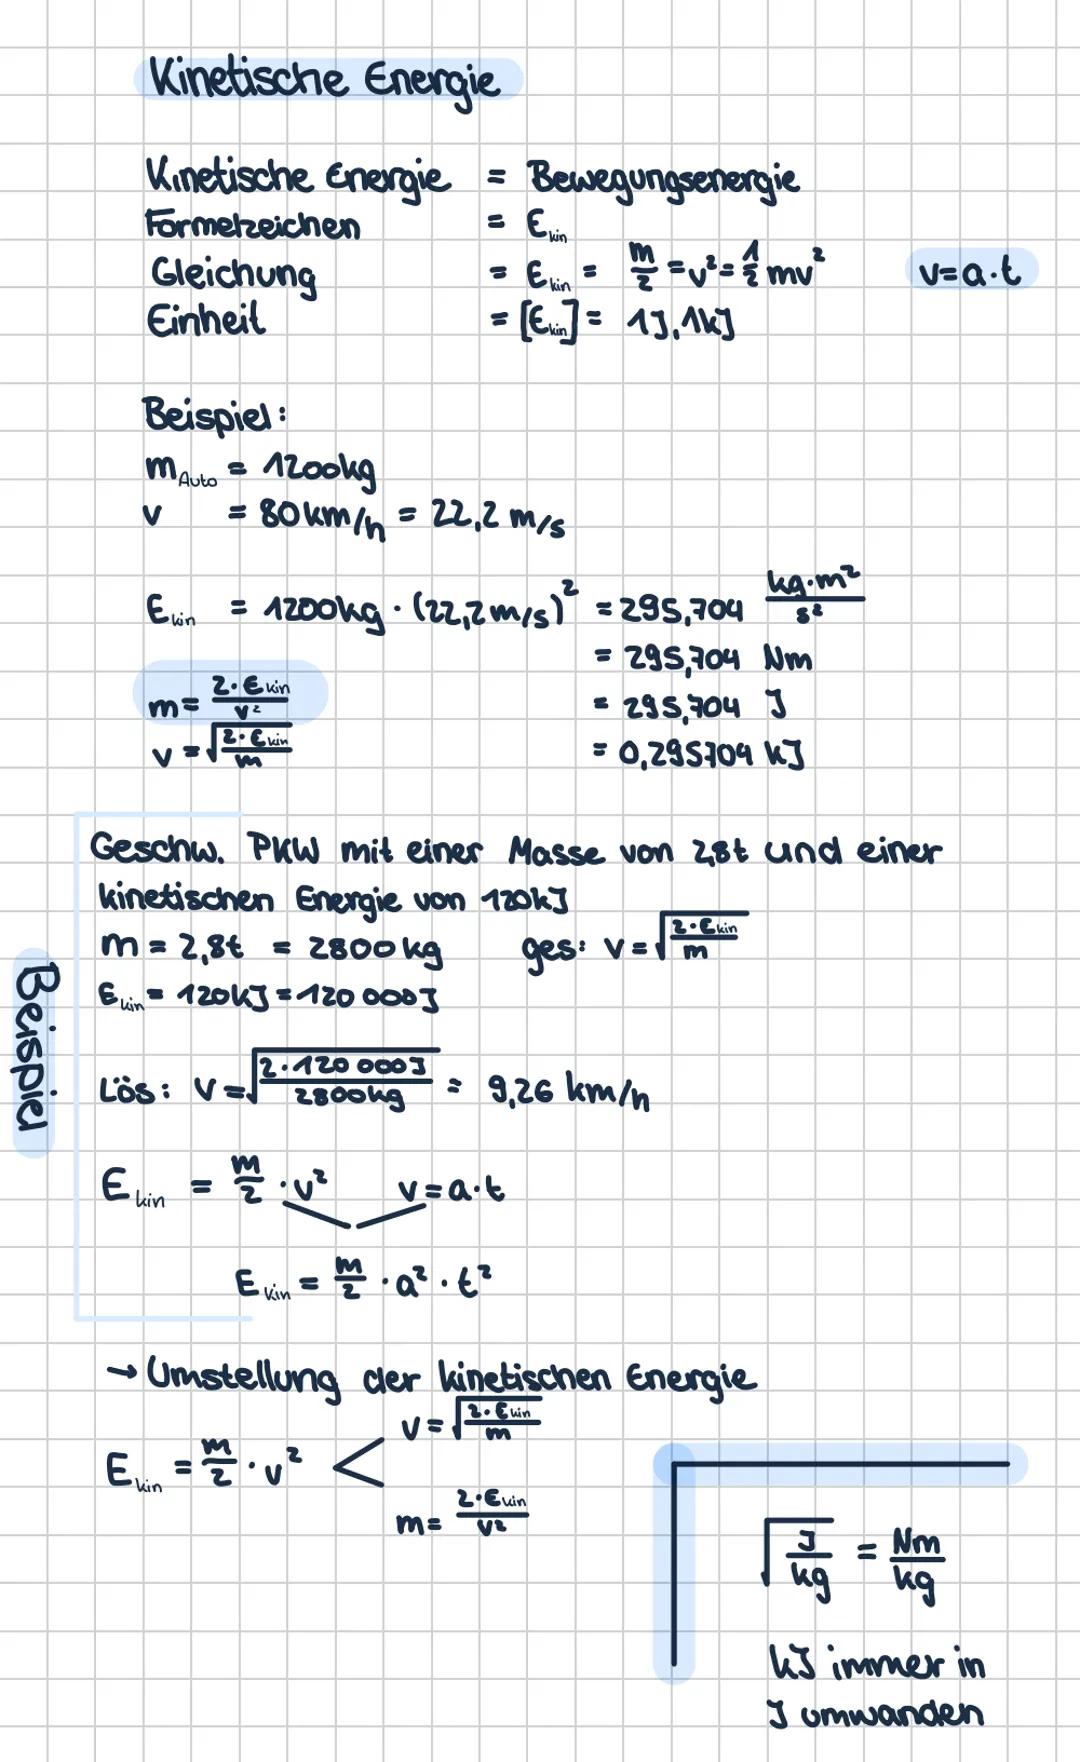 Kinetische Energie
Kinetische Energie = Bewegungsenergie
Formelzeichen = E kin
Gleichung = E kin = m/2 = v² = 1/2 mv² v = a · t
Einheit = [E kin] = 1J, 1kJ
Beispiel:
m Auto = 1200kg
v = 80 km/h = 22,2 m/s
E kin = 1200kg · (22,2 m/s)² = 295,704 kg·m²/s²
= 295,704 Nm
m = 2·E kin/v²
= 295,704 J
v = √(2·E kin/m)
= 0,295704 kJ
Geschw. PKW mit einer Masse von 2,8t und einer
kinetischen Energie von 120kJ
m = 2,8t = 2800 kg ges: v = √(2·E kin/m)
E kin = 120kJ = 120 000J
Beispiel
Lös: v = √(2·120 000J/2800kg) = 9,26 km/h
E kin = m/2 · v² v = a · t
E kin = m/2 · a² · t²
→ Umstellung der kinetischen Energie
v = √(2·E kin/m)
E kin = m/2 · v²
m = 2·E kin/v²
√(J/kg) = Nm/kg
kJ immer in
J umwanden